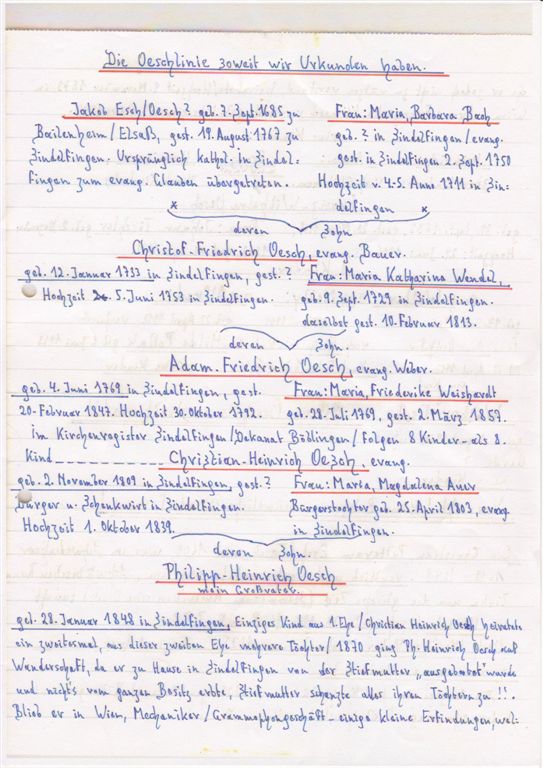 Die Oeschlinie soweit wir Urkunden haben.
Jakob Esch/Oesch? geb. 7. Sept. 1685 zu Frau: Maria, Barbara Bach
Bailenheim/Elsaß, gest. 19. August 1767 zu geb. ? in Sindelfingen/evang.
Sindelfingen. Ursprünglich kathol. in Sindel= gest. in Sindelfingen 2. Sept. 1750
fingen zum evang. Glauben übergetreten. Hochzeit v. 4-5. Anno 1711 in Sin=
* delfingen *
deren Sohn
Christof-Friedrich Oesch, evang. Bauer.
geb. 12. Januar 1733 in Sindelfingen, gest. ? Frau: Maria Katharina Wendel,
Hochzeit 5. Juni 1753 in Sindelfingen. geb. 9. Sept. 1729 in Sindelfingen.
daselbst gest. 10. Februar 1813.
deren Sohn.
Adam-Friedrich Oesch, evang. Weber.
geb. 4. Juni 1769 in Sindelfingen, gest. Frau: Maria, Friederike Weishardt
20. Februar 1847. Hochzeit 30. Oktober 1792. geb. 28. Juli 1769, gest. 2. März 1857.
im Kirchenregister Sindelfingen/Dekanat Böblingen/ Folgen 8 Kinder - als 8.
Kind - - - - - - - - - - - Christian-Heinrich Oesch, evang.
geb. 2. November 1809 in Sindelfingen, gest. ? Frau: Maria, Magdalena
Bürger u. Schenkwirt in Sindelfingen. Bürgerstochter geb. 25. April 1803, evang.
Hochzeit 1. Oktober 1839. in Sindelfingen.
deren Sohn.
Philipp-Heinrich Oesch
mein Großvater.
geb. 28. Januar 1848 in Sindelfingen, Einziges Kind aus 1. Ehe / Christian Heinrich Oesch heiratete
ein zweitesmal, aus dieser zweiten Ehe mehrere Töchter / 1870 ging Ph. Heinrich Oesch auf
Wanderschaft, da er zu Hause in Sindelfingen von der Stiefmutter „ausgebootet" wurde
und nichts vom ganzen Besitz erbte, Stiefmutter schanzte alles ihren Töchtern zu !!.
Blieb er in Wien, Mechaniker / Grammophongeschäft - einige kleine Erfindungen, wel-